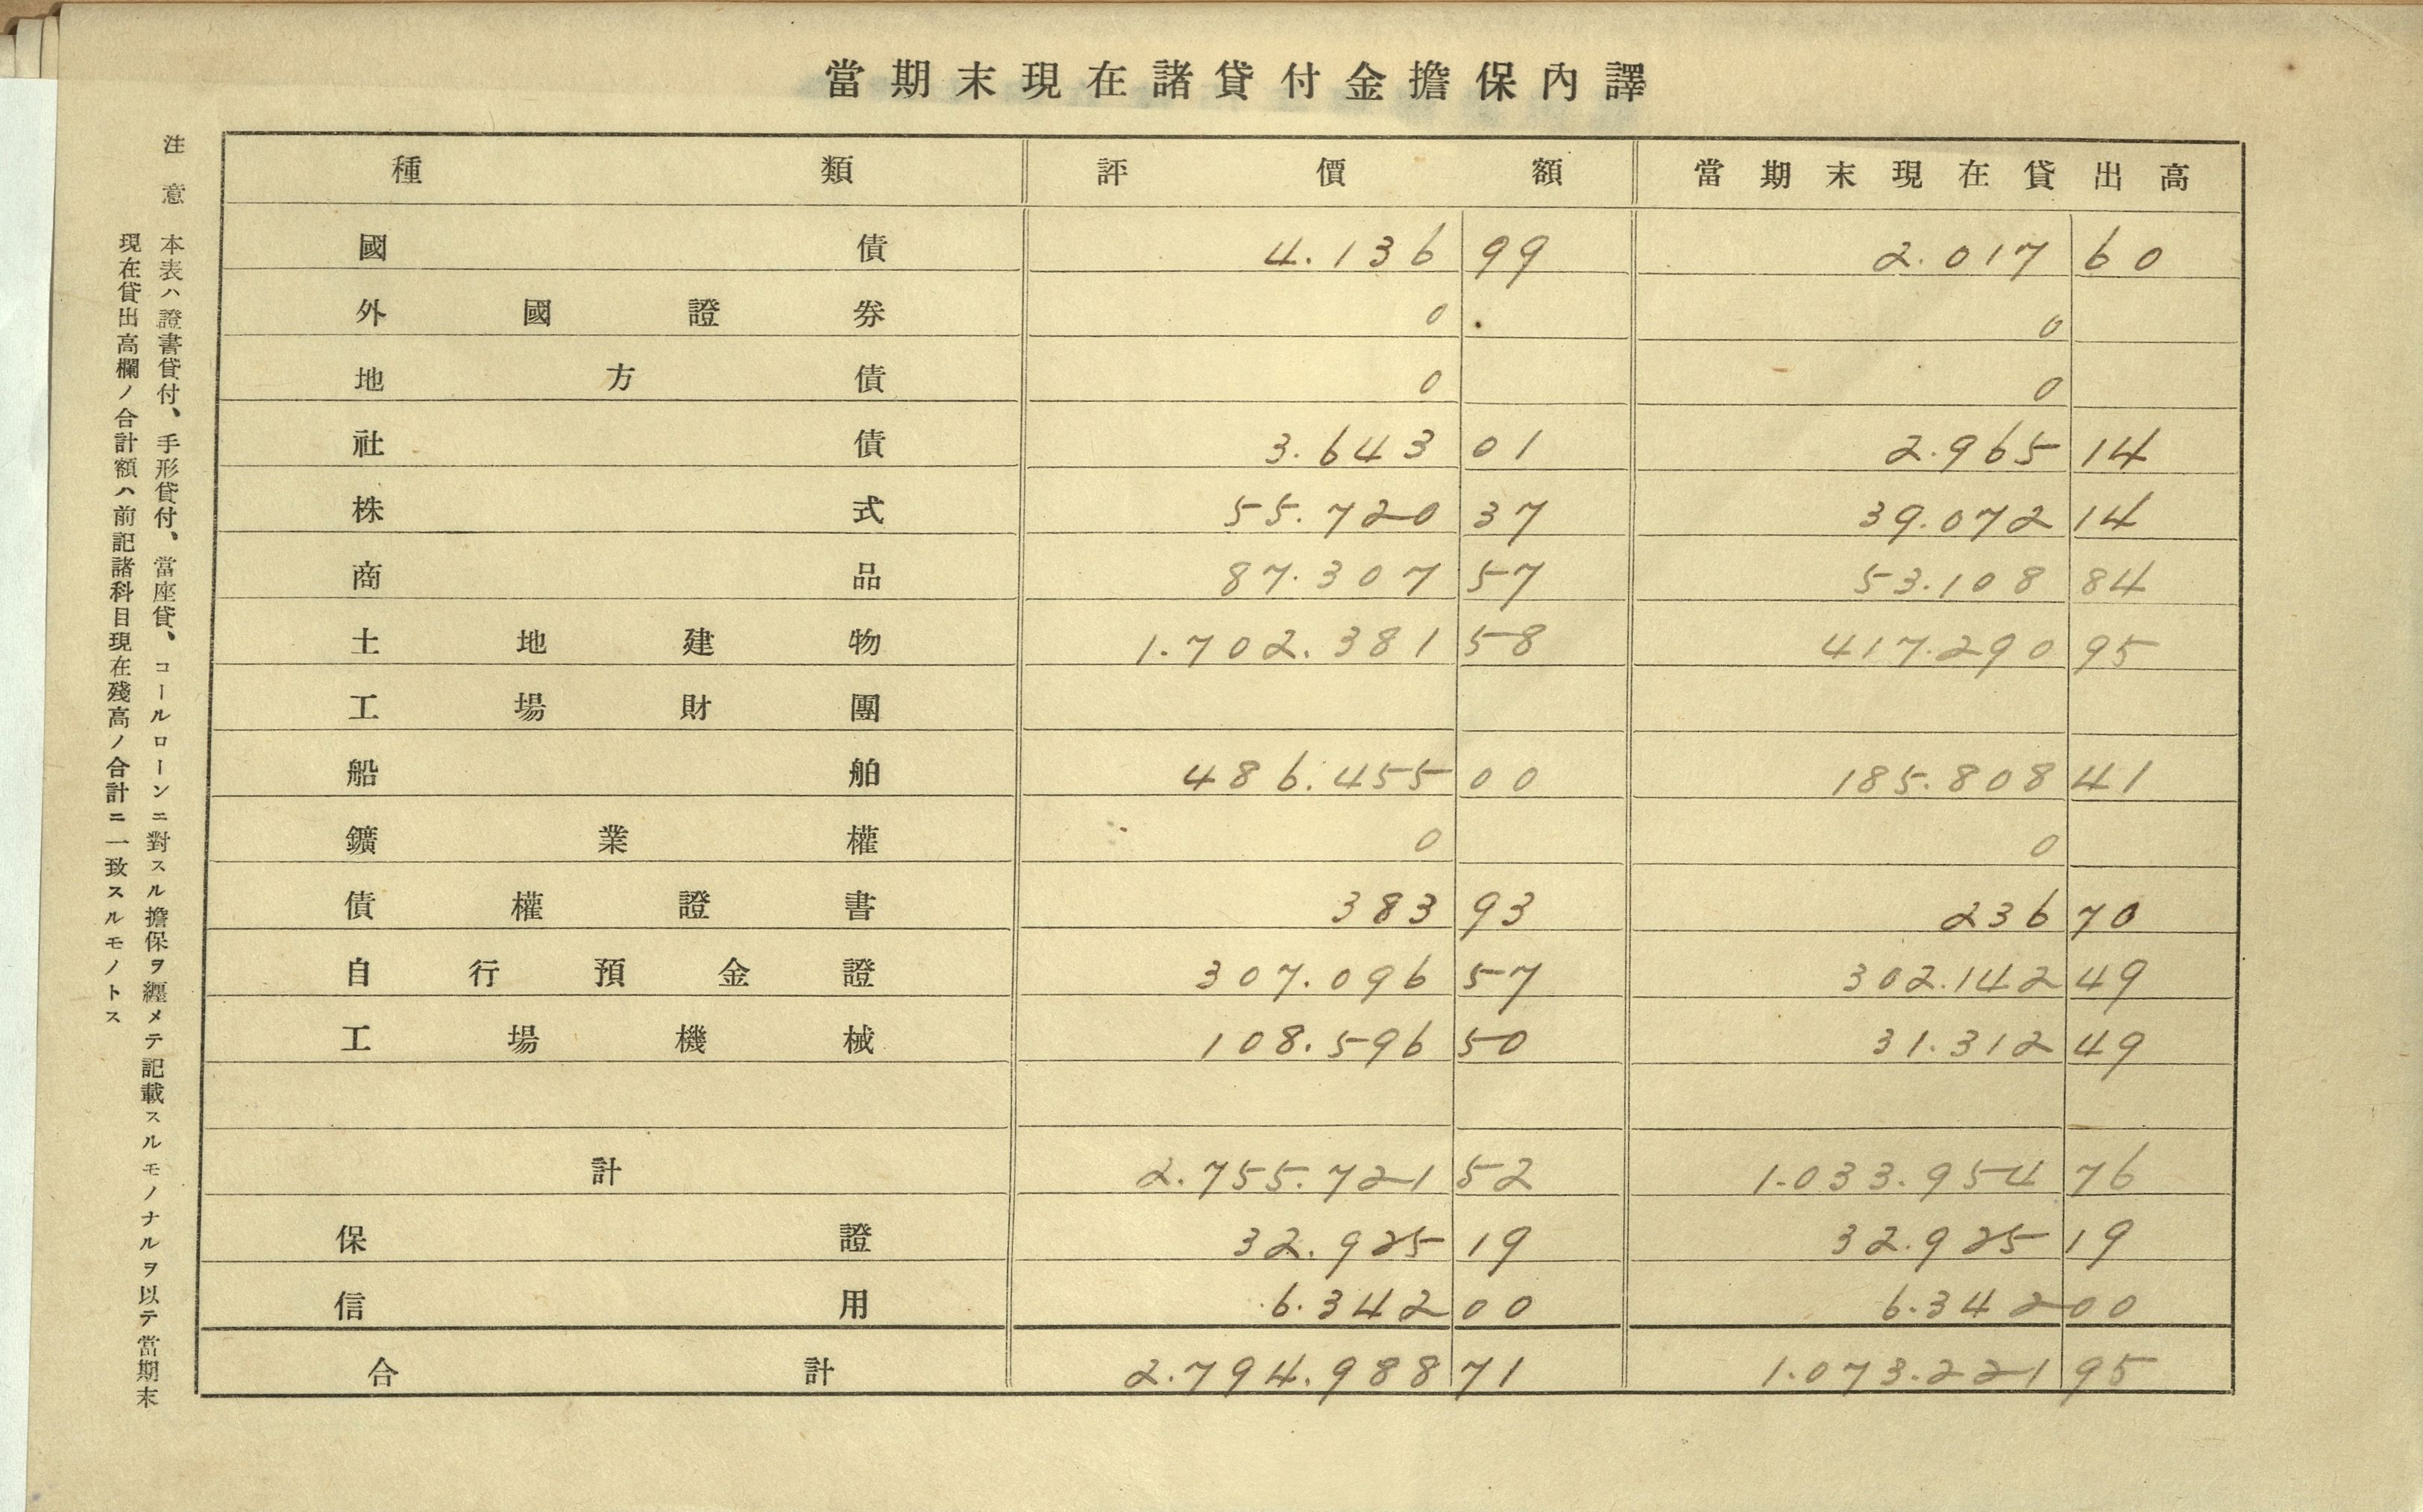 當期末現在諸貸付金擔保內譯
種類 評價額 當期末現在貸出高
國債 4.136 99 2.017 60
外國證券 0 0
地方債 0 0
社債 3.643 01 2.965 14
株式 55.720 37 39.072 14
商品 87.307 57 53.108 84
土地建物 1.702.381 58 417.290 95
工場財團
船舶 486.455 00 185.808 41
鑛業權 0 0
債權證書 383 93 236 70
自行預金證 307.096 57 302.142 49
工場機械 108.596 50 31.312 49
計 2.755.721 52 1.033.954 76
保證 32.925 19 32.925 19
信用 6.342 00 6.342 00
合計 2.794.988 71 1.073.221 95
注意
本表ハ證書貸付、手形貸付、當座貸、コールローンニ對スル擔保ヲ纒メテ記載スルモノナルヲ以テ當期末
現在貸出高欄ノ合計額ハ前記諸科目現在殘高ノ合計ニ一致スルモノトス